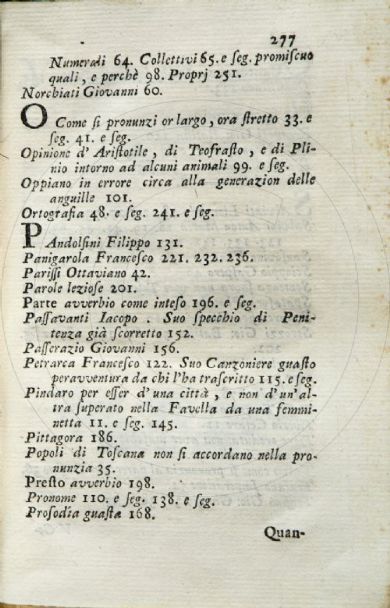 277
Numerali 64. Collettivi 65. e ſeg. promiſcuo
quali, e perchè 98. Proprj 251.
Norchiati Giovanni 60.
O Come ſi pronunzi or largo, ora ſtretto 33. e
ſeg. 41. e ſeg.
Opinione d' Ariſtotile, di Teofraſto, e di Pli-
nio intorno ad alcuni animali 99. e ſeg.
Oppiano in errore circa alla generazion delle
anguille 101.
Ortografia 48. e ſeg. 241. e ſeg.
PAndolfini Filippo 131.
Panigarola Franceſco 221. 232. 236.
Pariſſi Ottaviano 42.
Parole lezioſe 201.
Parte avverbio come inteſo 196. e ſeg.
Paſſavanti Iacopo. Suo ſpecchio di Peni-
tenza già ſcorretto 152.
Paſſerazio Giovanni 156.
Petrarca Franceſco 122. Suo Canzoniere guaſto
peravventura da chi l'ha traſcritto 115. e ſeg.
Pindaro per eſſer d'una città, e non d'un'al-
tra ſuperato nella Favella da una femmi-
netta 11. e ſeg. 145.
Pittagora 186.
Popoli di Toſcana non ſi accordano nella pro-
nunzia 35.
Preſto avverbio 198.
Pronome 110. e ſeg. 138. e ſeg.
Proſodia guaſta 168.
Quan-